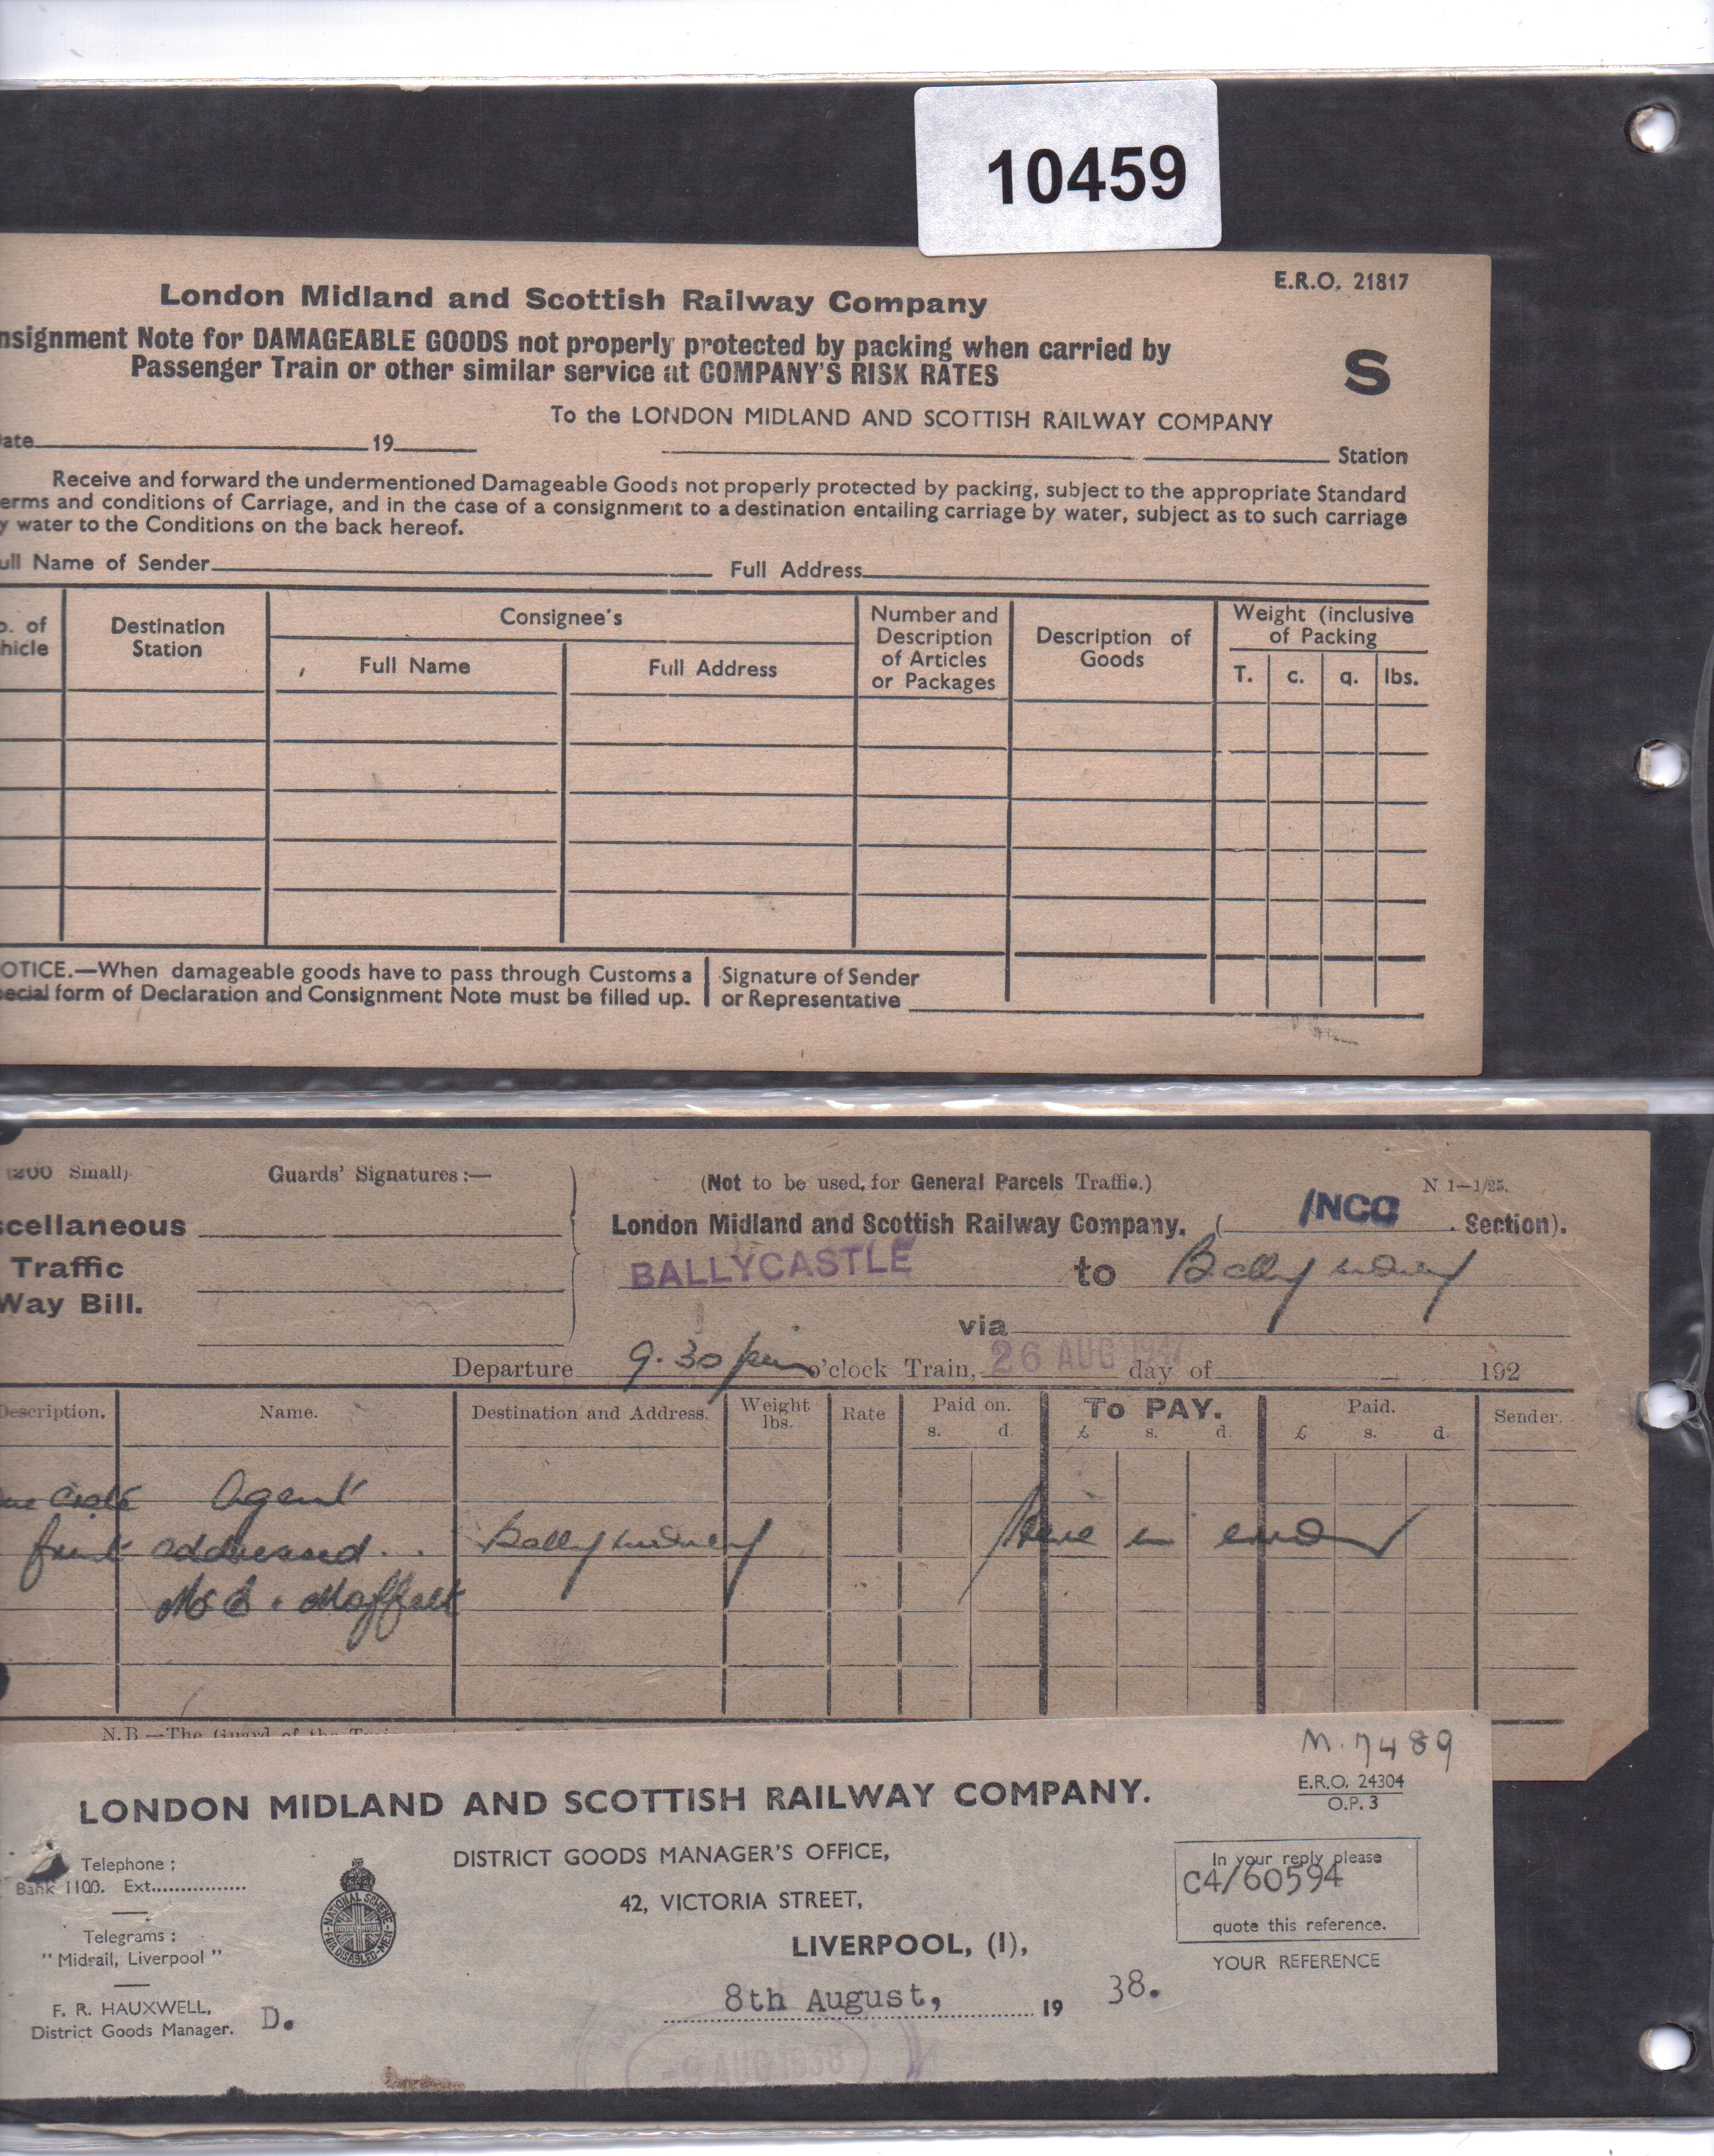 10459
E.R.O. 21817
London Midland and Scottish Railway Company
nsignment Note for DAMAGEABLE GOODS not properly protected by packing when carried by
Passenger Train or other similar service at COMPANY'S RISK RATES
S
To the LONDON MIDLAND AND SCOTTISH RAILWAY COMPANY
ate 19 Station
Receive and forward the undermentioned Damageable Goods not properly protected by packing, subject to the appropriate Standard
erms and conditions of Carriage, and in the case of a consignment to a destination entailing carriage by water, subject as to such carriage
y water to the Conditions on the back hereof.
ull Name of Sender Full Address
o. of
hicle
Destination
Station
Consignee's
Full Name
Full Address
Number and
Description
of Articles
or Packages
Description of
Goods
Weight (inclusive
of Packing
T. c. q. lbs.
OTICE.—When damageable goods have to pass through Customs a
pecial form of Declaration and Consignment Note must be filled up.
Signature of Sender
or Representative
(200 Small)
Guards' Signatures:—
(Not to be used for General Parcels Traffic.)
N 1—1/25.
scellaneous
Traffic
Way Bill.
London Midland and Scottish Railway Company. ( NCC Section).
BALLYCASTLE to
via
Departure 9.30 pm o'clock Train, 26 AUG day of 192
Description. Name. Destination and Address. Weight lbs. Rate Paid on. s. d. To PAY. £ s. d. Paid. £ s. d. Sender.
Agent
addressed..
N.B.—The Guard of the
M.7489
LONDON MIDLAND AND SCOTTISH RAILWAY COMPANY.
E.R.O. 24304
O.P. 3
Telephone :
Bank 1100. Ext................
Telegrams :
"Midrail, Liverpool"
F. R. HAUXWELL,
District Goods Manager.
D.
NATIONAL SCHEME
FOR DISABLED MEN
DISTRICT GOODS MANAGER'S OFFICE,
42, VICTORIA STREET,
LIVERPOOL, (1),
8th August, 19 38.
In your reply please
C4/60594
quote this reference.
YOUR REFERENCE
AUG 1938